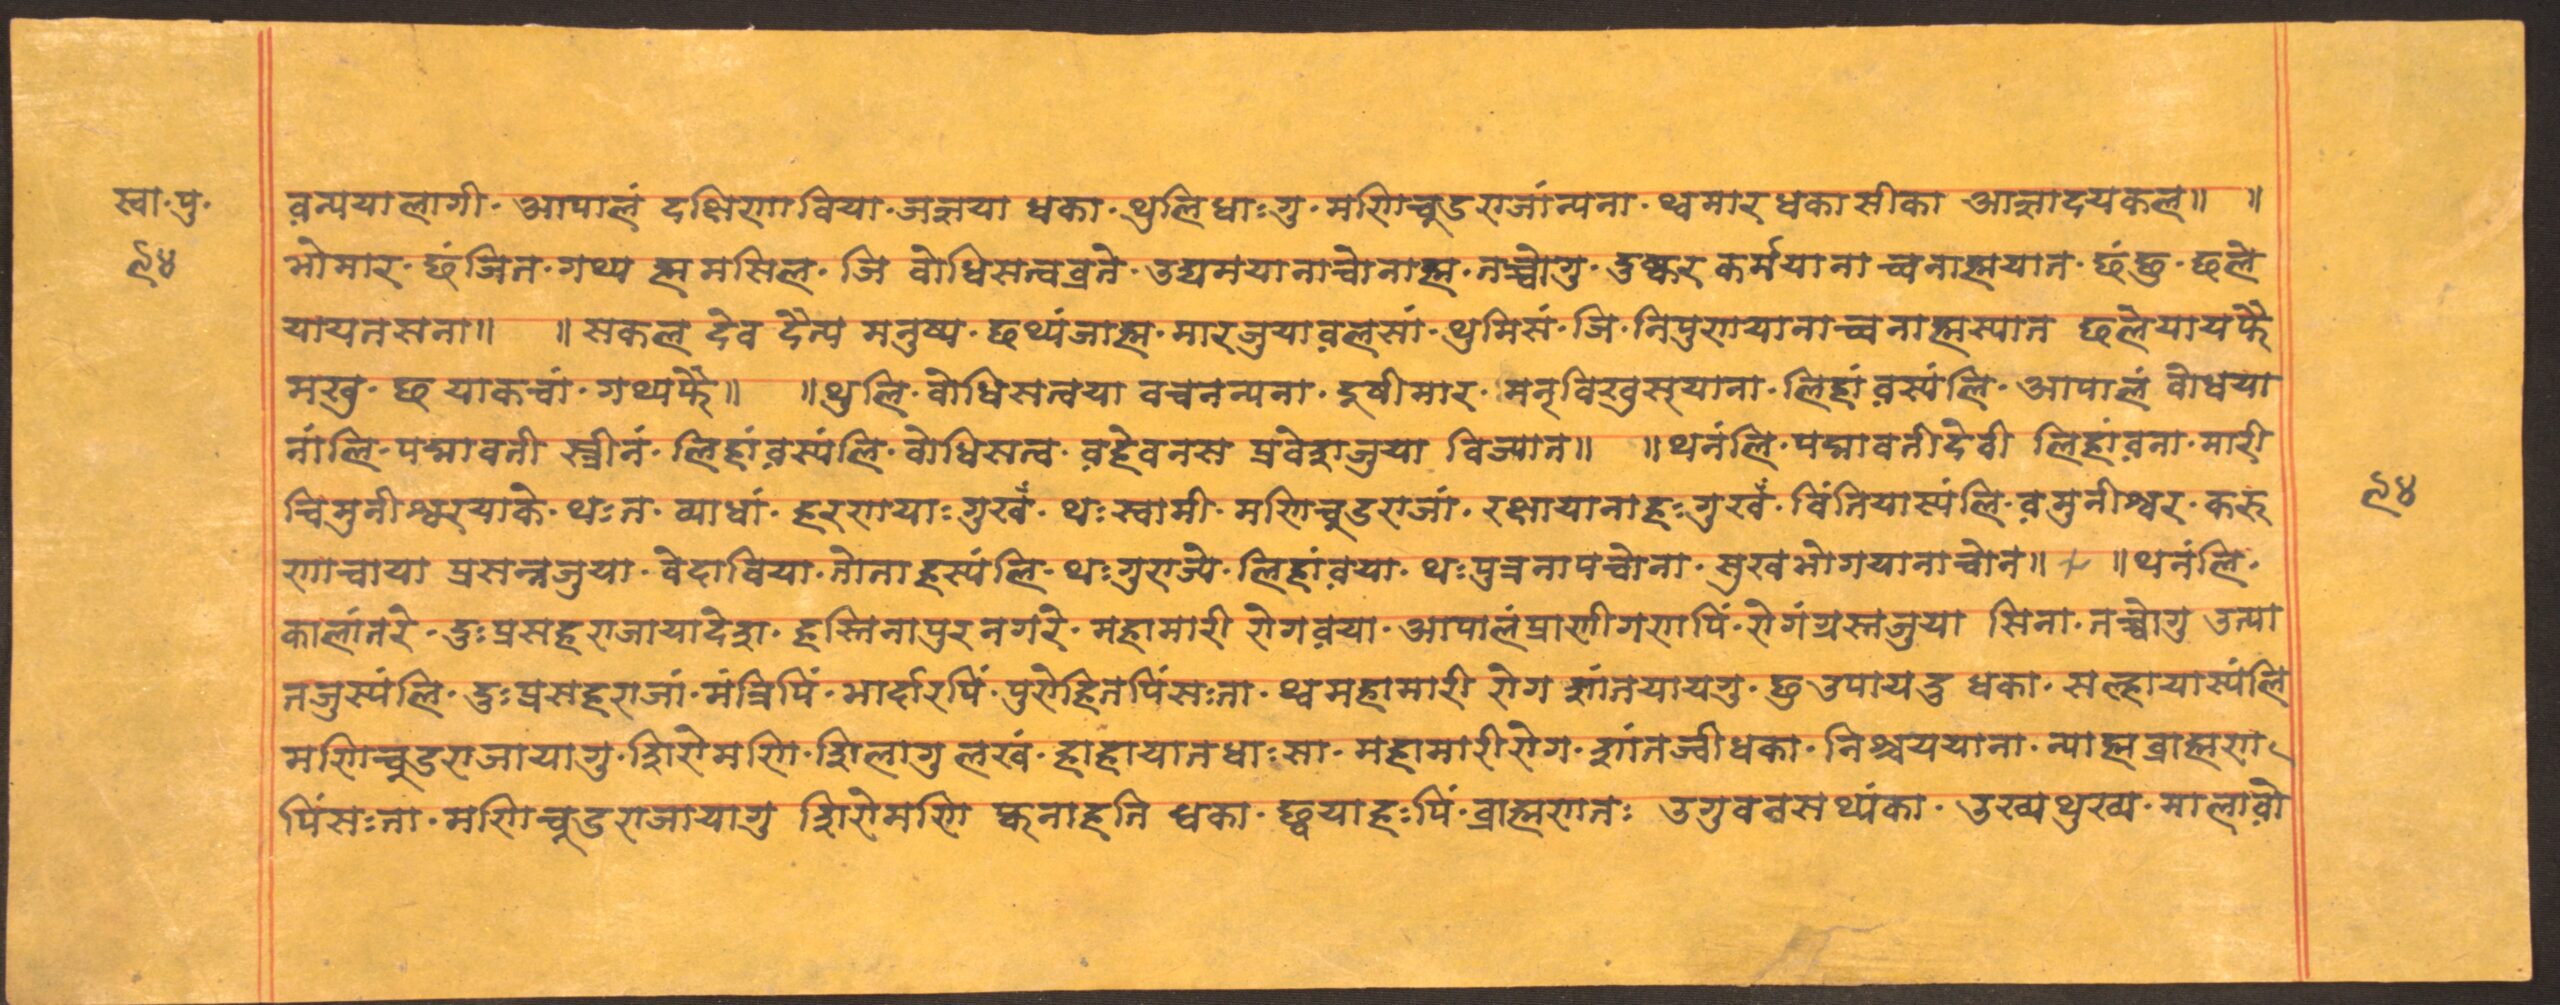 स्वा॰पु॰
९४
व़न्यया लागी॰ आपालं दक्षिणा विया॰ जज्ञया धका॰ थुलिधाःगु॰ मणिचूड राजांन्यना॰ थ्वमार धका सीका आज्ञादयकल॥ ॥
भोमार॰ छं जित॰ गथ्य ह्म मसिल॰ जि वोधिसत्वव्रते॰ उद्यमयानाचोनाह्म॰ तच्वोगु॰ दुष्कर कर्मयाना च्वनाह्मयात॰ छं छु॰ छले
यायतसना॥ ॥ सकल देव दैत्य मनुष्य॰ छथ्यंजाह्म॰ मारजुया व़लसां॰ थुमिसं॰ जि॰ निपुणयानाच्वनाह्मस्यात छलेयायफै
मखु॰ छ याकचां॰ गथ्यफै॥ ॥ थुलि॰ वोधिसत्वया वचनन्यना॰ दूषीमार॰ मनृविखुसृयाना॰ लिहां व़स्यंलि॰ आपालं वोधया
नांलि॰ पद्मावती स्त्रीनं॰ लिहां व़स्यंलि॰ वोधिसत्व॰ व़हेवनस प्रवेशजुया विज्यात॥ ॥ थनंलि॰ पद्मावतीदेवी लिहांव़ना॰ मारी
चिमुनीश्वरयाके॰ थःत॰ व्याधां॰ हरणयाःगुखँ॰ थःस्वामी॰ मणिचूडराजां॰ रक्षायानाहःगुखँ॰ विंतियास्यंलि॰ व़मुनीश्वर॰ करु
णाचाया प्रसन्नजुया॰ वेदाविया॰ तोताहस्यंलि॰ थःगुराज्ये॰ लिहांव़या॰ थःपुत्रनापचोना॰ सुखभोगयानाचोन॥ ॥ थनंलि॰
कालांतरे॰ दुःप्रसहराजायादेश॰ हस्तिनापुरनगरे॰ महामारी रोगव़या॰ आपालंप्राणीगणपिं॰ रोगंग्रस्तजुया सिना॰ तच्वोगु उत्पा
तजुस्यंलि॰ दुःप्रसहराजां॰ मंत्रिपिं॰ भार्दारपिं॰ पुरोहितपिंसःता॰ थ्वमहामारी रोग शांतयायगु॰ छुउपायदु धका॰ सल्हायास्यंलि
मणिचूडराजायागु॰ शिरोमणि॰ शिलागु लखं॰ हाहायातधाःसा॰ महामारीरोग॰ शांतज्वीधका॰ निश्चययाना॰ न्याह्म ब्राह्मण
पिंसःता॰ मणिचूडराजायागु शिरोमणि फ्वनाहति धका॰ छ्वयाहःपिं॰ ब्राह्मणतः उगुवनस थ्यंका॰ उख्य थुख्य॰ मालाव़ो
९४